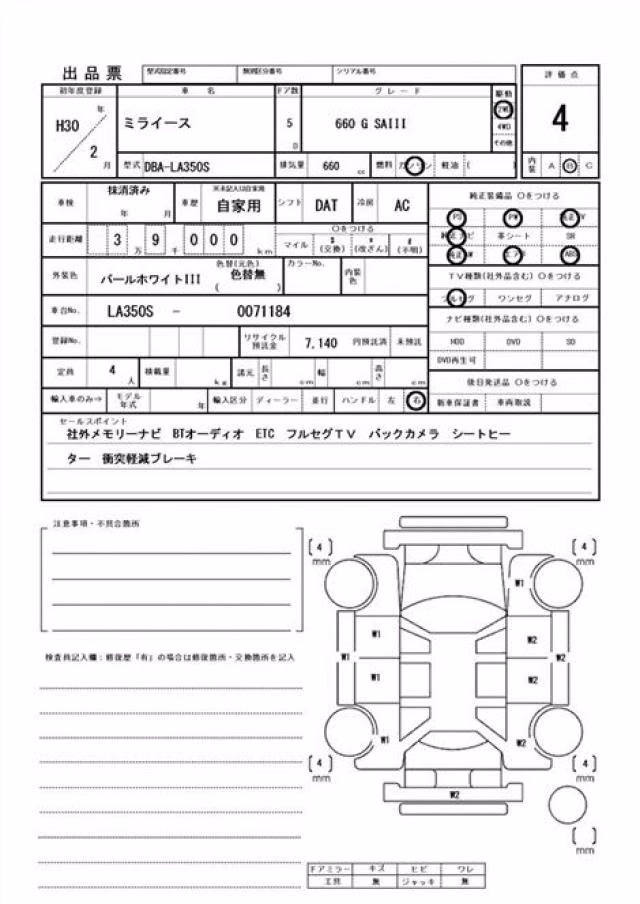 出品票 型式指定番号 類別区分番号 シリアル番号
初年度登録 車 名 ドア数 グレード 駆動 評価点
H30 年 2 月 ミライース 5 D 660 G SAIII 2WD 4WD その他 4
型式 DBA-LA350S 排気量 660 cc 燃料 ガソリン 軽油 ( ) 内装 A B C
車検 抹消済み 年 月 車歴 ※未記入は自家用 自家用 シフト DAT 冷房 AC 純正装備品 〇をつける
PS PW 純正TV
走行距離 3 万 9 千 0 0 0 km 〇をつける マイル $ (交換) * (改ざん) # (不明) 純正ナビ 革シート SR
純正AW エアB ABS
外装色 パールホワイトIII 色替(元色) 色替無 ( ) カラーNo. 内装色 TV種類(社外品含む) 〇をつける
フルセグ ワンセグ アナログ
車台No. LA350S - 0071184 ナビ種類(社外品含む) 〇をつける
登録No. リサイクル預託金 7,140 円預託済 未預託 HDD DVD SD
DVD再生可
定員 4 人 積載量 kg 諸元 長さ cm 幅 cm 高さ cm 後日発送品 〇をつける
輸入車のみ⇒ モデル年式 年 輸入区分 ディーラー 並行 ハンドル 左 右 新車保証書 車両取説
セールスポイント
社外メモリーナビ BTオーディオ ETC フルセグTV バックカメラ シートヒー
ター 衝突軽減ブレーキ
注意事項・不具合箇所
[4] mm [4] mm
W1
W1 W2
W1 W2
W1 W2
検査員記入欄:修復歴「有」の場合は修復箇所・交換箇所を記入
W1 W2
[4] mm [4] mm
W2
[ ] mm
ドアミラー キズ ヒビ ワレ
工具 無 ジャッキ 無